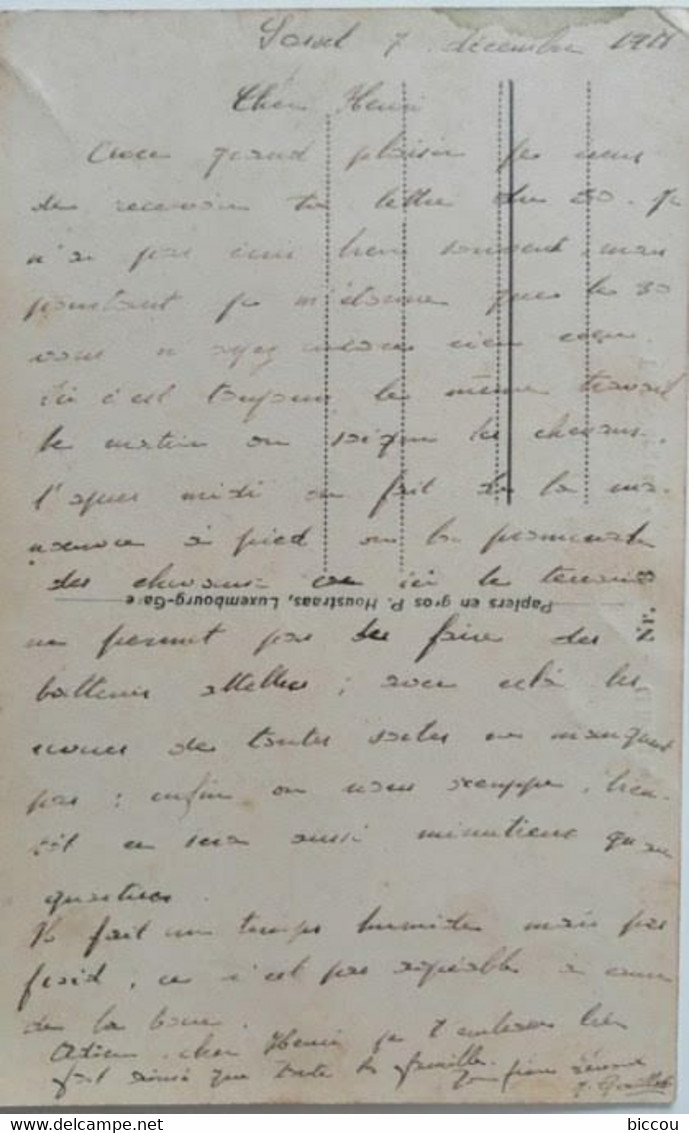 7 décembre 1918
Cher Henri
Avec grand plaisir je viens
de recevoir ta lettre du 30. Je
n'ai pas écrit bien souvent, mais
pourtant je m'étonne que le 30
vous n'ayez encore rien reçu.
Ici c'est toujours le même travail
le matin on soigne les chevaux,
l'après midi on fait de la ma-
nœuvre à pied ou la promenade
des chevaux car ici le terrain
Papiers en gros P. Houstraas, Luxembourg-Gare
Nr. 3
ne permet pas de faire des
batteries attelées ; avec cela les
revues de toutes sortes ne manquent
pas ; enfin on nous occupe, bien-
tôt ce sera aussi minutieux qu'au
quartier.
Il fait un temps humide mais pas
froid, ce n'est pas agréable à cause
de la boue.
Adieu cher Henri je t'embrasse bien
fort ainsi que toute la famille. Ton frère
biccou